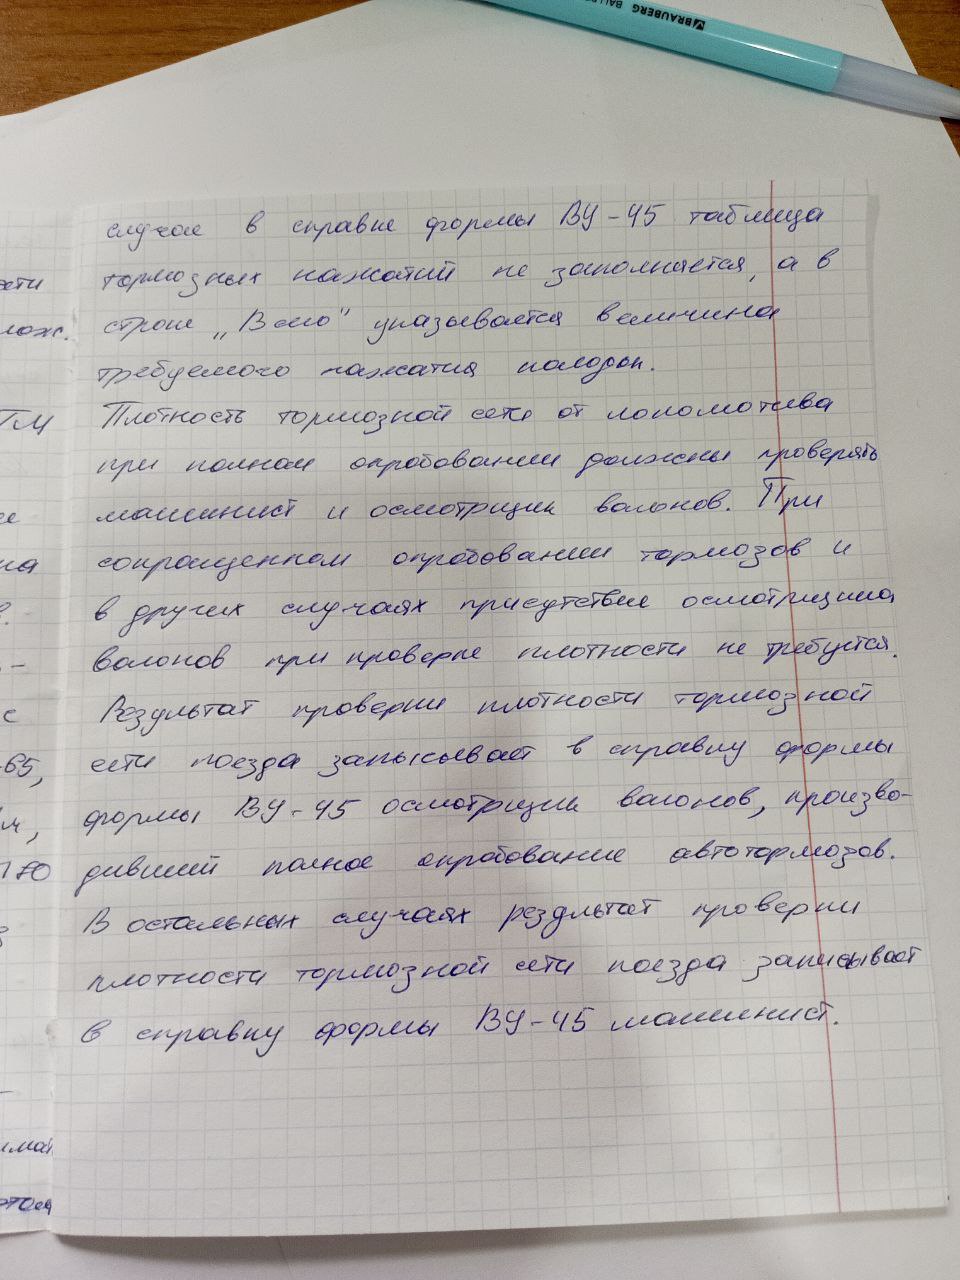 BRAUBERG
случае в справке формы ВУ-45 таблица
тормозных нажатий не заполняется, а в
строке „Всего" указывается величина
требуемого нажатия колодок.
Плотность тормозной сети от локомотива
при полном опробовании должны проверять
машинист и осмотрщик вагонов. При
сокращенном опробовании тормозов и
в других случаях присутствие осмотрщика
вагонов при проверке плотности не требуется.
Результат проверки плотности тормозной
сети поезда записывает в справку формы
формы ВУ-45 осмотрщик вагонов, произво-
дивший полное опробование автотормозов.
В остальных случаях результат проверки
плотности тормозной сети поезда записывает
в справку формы ВУ-45 машинист.